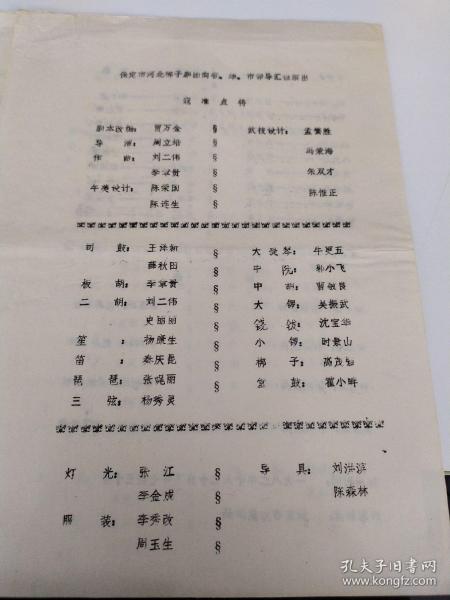 保定市河北梆子剧团向省、地、市领导汇报演出
寇准点将
剧本改编：贾万金 § 武技设计：孟繁胜
导演：周立培 § 冯荣海
作曲：刘二伟 § 朱双才
李章贵 § 陈惟正
午美设计：陈荣国 §
陈连生 §
司鼓：王泽新 § 大提琴：牛更五
薛秋田 § 中阮：郭小飞
板胡：李章贵 § 中胡：贾敏良
二胡：刘二伟 § 大锣：吴振武
史丽丽 § 铙钹：沈宝华
笙：杨赓生 § 小锣：时景山
笛：秦庆昆 § 梆子：高茂
琵琶：张晓丽 § 堂鼓：翟小
三弦：杨秀灵
灯光：张江 § 导具：刘洪滨
李金虎 § 陈森林
服装：李秀改 §
周玉生 §
孔夫子旧书网
www.kongfz.com